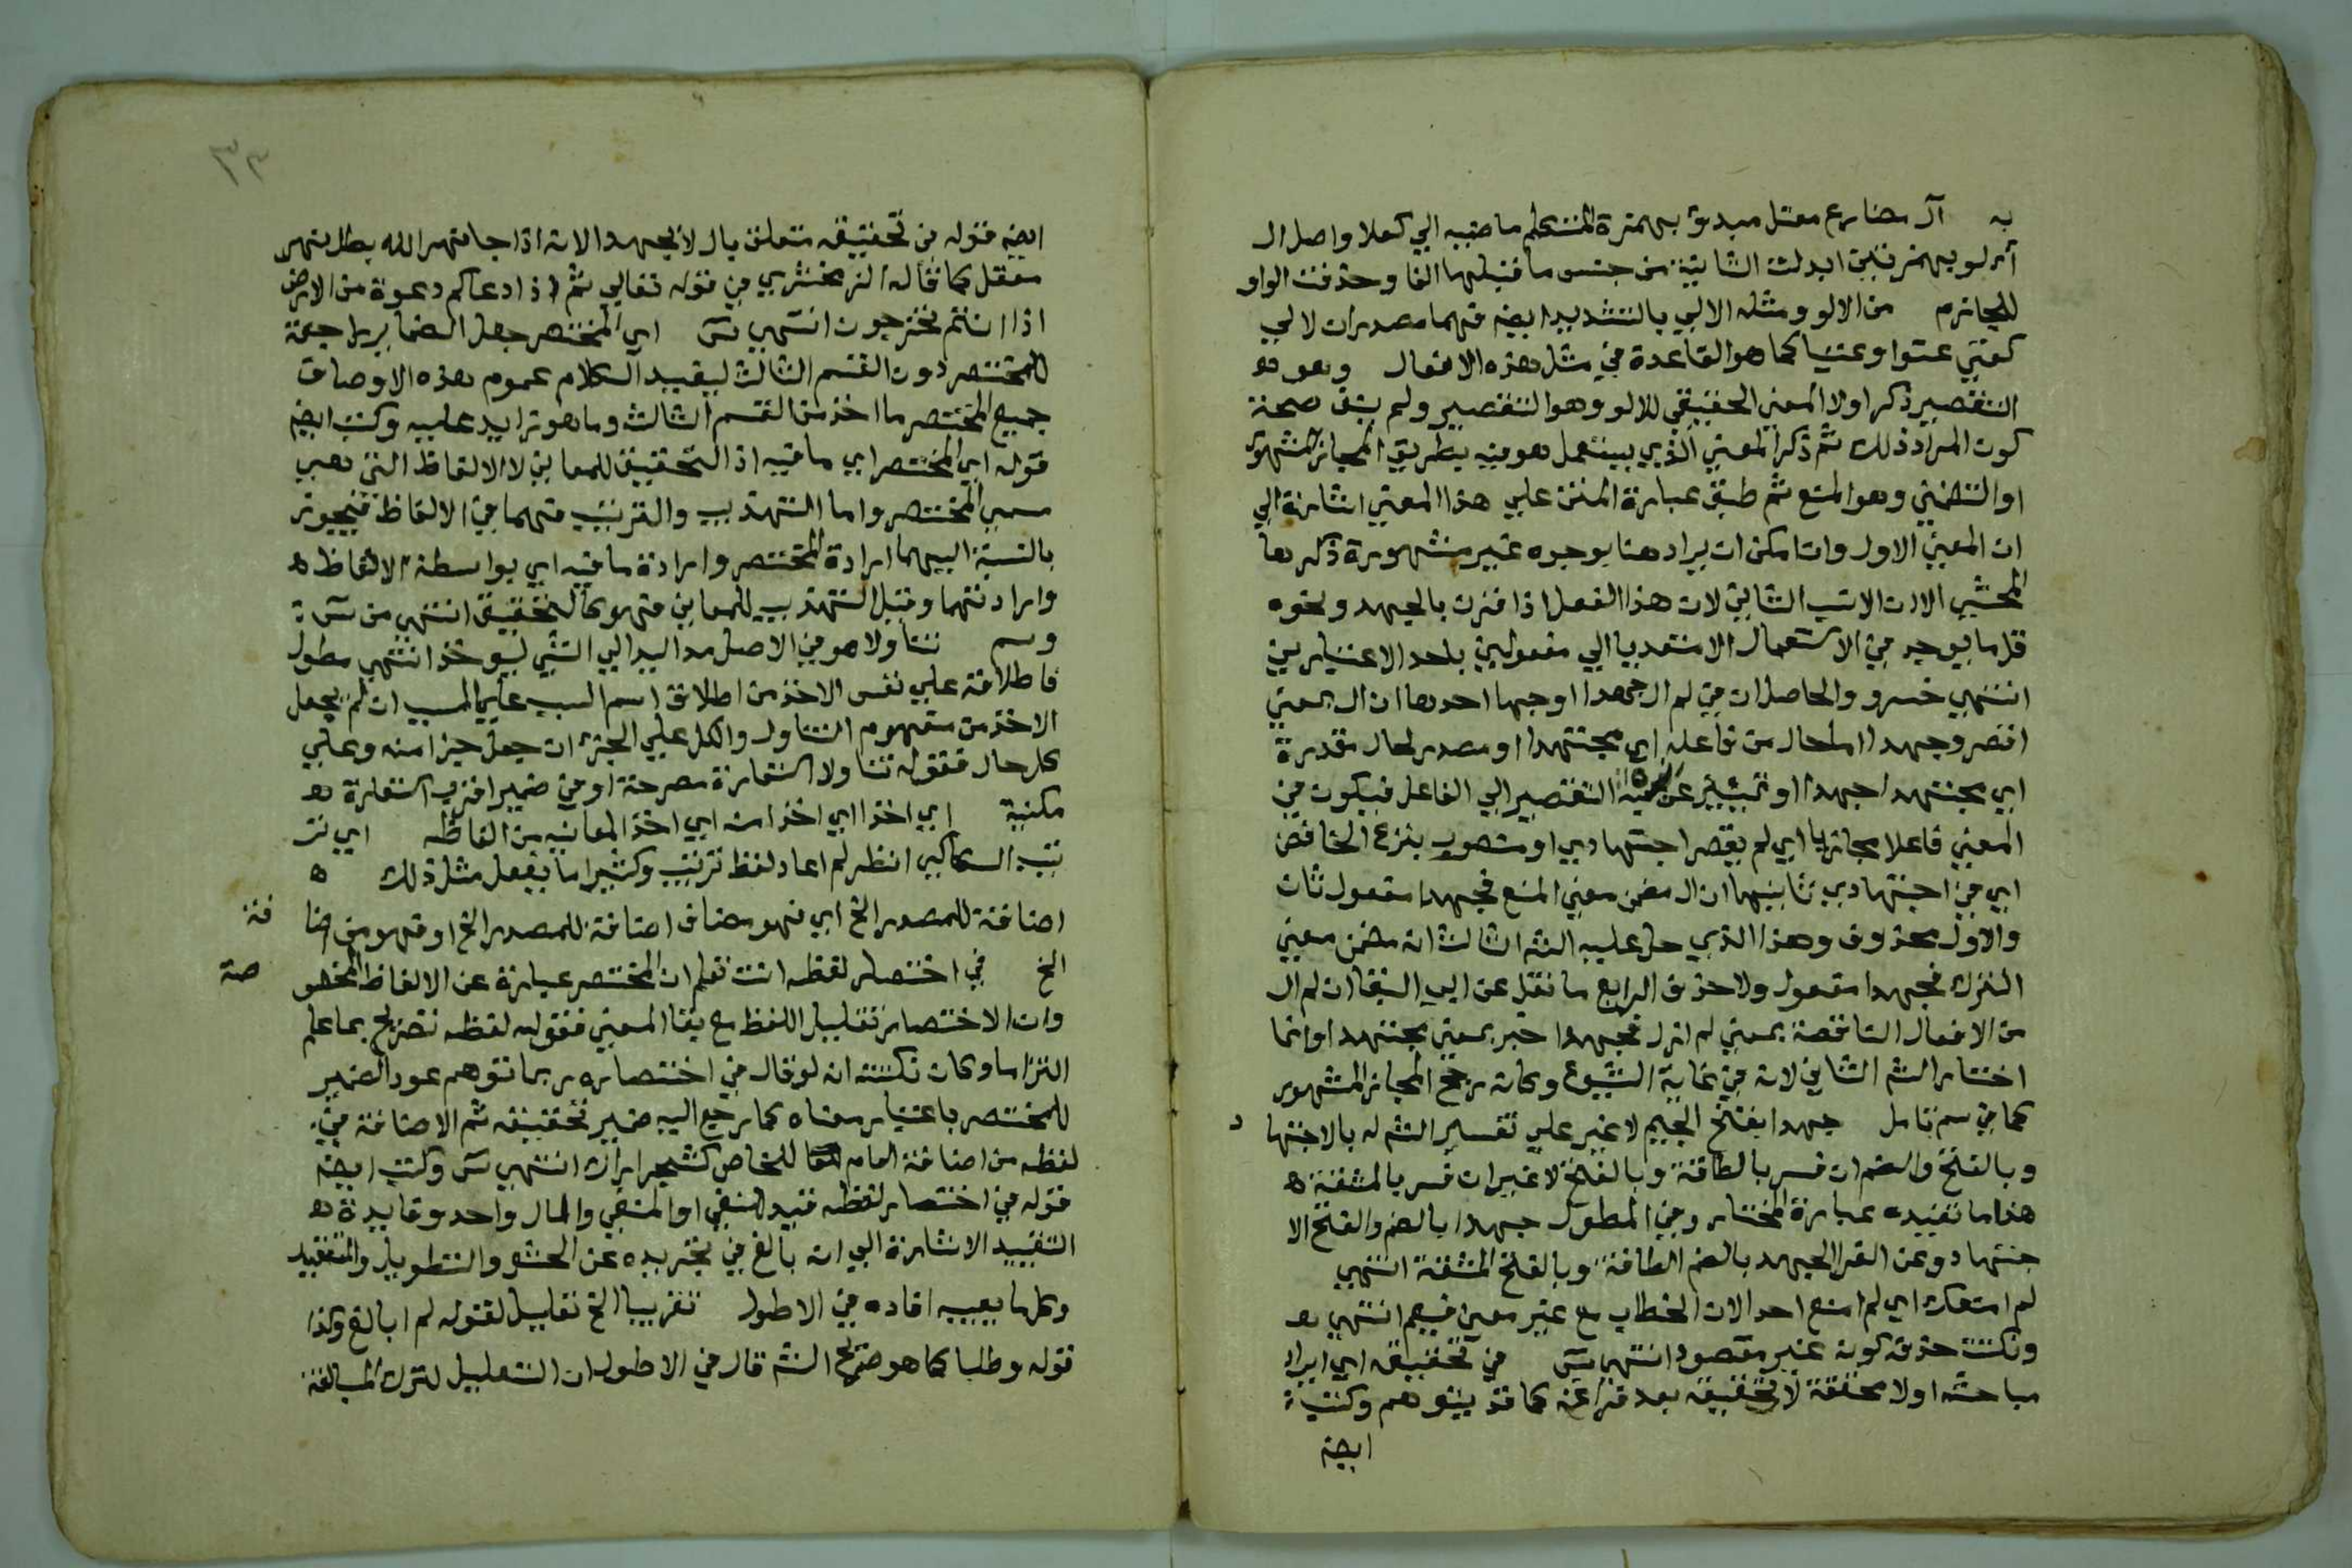 به آل مضارع معتل مبدؤ بهمزة المتكلم ماضيه الي كعلا واصل ال
أألو بهمزتين ابدلت الثانية من جنس ما قبلها الفا وحذفت الواو
للجازم من الالو ومثله الالي بالتشديد ايضه فهما مصدران لالي
كعتي عتوا وعتيا كما هو القاعدة في مثل هذه الافعال وهو هو
التقصير ذكر اولا المعني الحقيقي للالو وهو التقصير ولم يبق صحة
كون المراد ذلك ثم ذكر المعني الذي يستعمل هو فيه بطريق المجاز المشهور
او التضمين وهو المنع ثم طبق عبارة المتن علي هذا المعني اشارة الي
ان المعني الاول وان امكن ان يراد هنا بوجوه غير مشهورة ذكرها
المحشي الا ان الانسب الثاني لان هذا الفعل اذا قرن بالجهد ونحوه
قلما يوجد في الاستعمال الا متعديا الي مفعولين باحد الاعتبارين
انتهي خسرو والحاصل ان في لم ال جهدا اوجها احدها ان ال بمعني
اقصر وجهدا اما حال من فاعله اي مجتهدا او مصدر لحال مقدرة
اي مجتهدا جهدا او تمييز عن نسبة التقصير الي الفاعل فيكون في
المعني فاعلا مجازيا اي لم يقصر اجتهادي او منصوب بنزع الخافض
اي في اجتهادي ثانيها ان ال مضمن معني المنع فجهدا مفعول ثان
والاول محذوف وهذا الذي حل عليه الشه الثالث انه مضمن معني
الترك فجهدا مفعول ولا حذف الرابع ما نقل عن ابي البقا ان لم ال
من الافعال الناقصة بمعني لم ازل فجهدا خبر بمعني مجتهدا وانما
اختار الشه الثاني لانه في غاية الشيوع وكانه رجح المجاز المشهور
كما في سم تامل جهدا بفتح الجيم لا غير علي تفسير الشه له بالاجتها د
وبالفتح والضم ان فسر بالطاقة وبالفتح لا غير ان فسر بالمشقة ه
هذا ما تفيده عبارة المختار وفي المطول جهدا بالضم والفتح الا
جتهاد وعن الفرا الجهد بالضم الطاقة وبالفتح المشقة انتهي
لم امنعك اي لم امنع احدا لان الخطاب مع غير معين فيعم انتهي هو
ونكتت حذفه كونه غير مقصود انتهي سَ في تحقيقه اي ايراد
مباحثه اولا محققة لا تحقيقه بعد فراغه كما قد يتوهم وكتب
ايضه
٣٣
ايضه قوله في تحقيقه متعلق بال لا بجهدا لانه اذا جا نهر الله بطل نهر
معقل كما قاله الزمخشري في قوله تعالي ثم اذا دعاكم دعوة من الارض
اذا انتم تخرجون انتهي سَ اي المختصر جعل الضماير راجعة
للمختصر دون القسم الثالث ليفيد الكلام عموم هذه الاوصاف
جميع المختصر ما اخذ من القسم الثالث وما هو زايد عليه وكتب ايضه
قوله اي المختصر اي ما فيه اذ التحقيق للمعاني لا الالفاظ التي هي
مسمي المختصر واما التهذيب والترتيب فهما في الالفاظ فيجوز
بالنسبة اليهما ارادة المختصر وارادة ما فيه اي بواسطة الالفاظ ه
وارادتهما وقيل التهذيب للمعاني فهو كالتحقيق انتهي من سَ
وسم تناولا هو في الاصل مد اليد الي الشي ليوخذ انتهي مطول
فاطلاقه علي نفس الاخذ من اطلاق اسم السبب علي المسبب ان لم يجعل
الاخذ من مفهوم التناول والكل علي الجزء ان جعل جزا منه وعلي
كل حال فقوله تناولا استعارة مصرحة او في ضمير اقرب استعارة هو
مكنية اي اخذا اي اخذا منه اي اخذ المعانيه من الفاظه اي تر
تيب السكاكي انظر لم اعاد لفظ ترتيب وكثيرا ما يفعل مثل ذلك ه
اضافة للمصدر الخ اي فهو مضاف اضافة للمصدر الخ او فهو من اضا فة
الخ في اختصار لفظه انت تعلم ان المختصر عبارة عن الالفاظ المخصو صة
وان الاختصار تقليل اللفظ مع بقا المعني فقوله لفظه تصريح بما علم
التزاما وكان نكتته انه لو قال في اختصاره ربما توهم عود الضمير
للمختصر باعتبار معناه كما رجع اليه ضمير تحقيقه ثم الاضافة في
لفظه من اضافة العام للخاص كشجر اراك انتهي سَ وكتب ايضه
قوله في اختصار لفظه قيد للنفي او المنفي والمال واحد وفايدة هو
التقييد الاشارة الي انه بالغ في تجريده عن الحشو والتطويل والتعقيد
وكلها يعيبه افاده في الاطول تقريبا الخ تعليل لقوله لم ابالغ وكذا
قوله وطلبا كما هو صريح الشه قال في الاطول ان التعليل لترك المبالغة